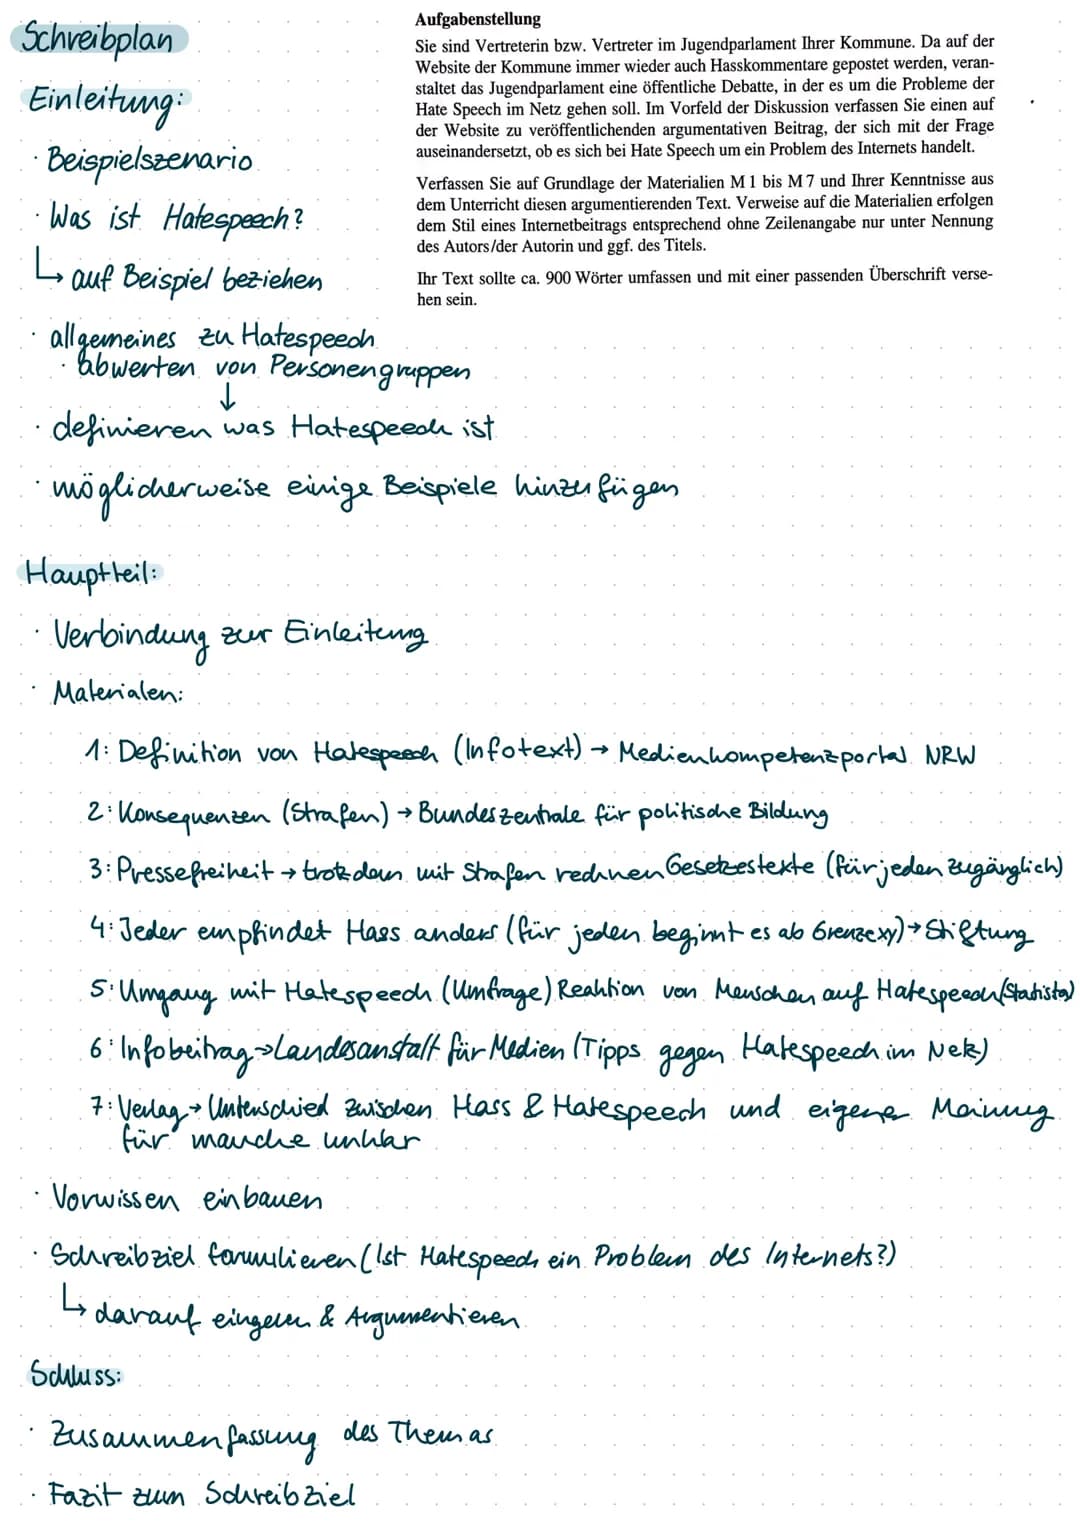 Schreibplan
Aufgabenstellung
Sie sind Vertreterin bzw. Vertreter im Jugendparlament Ihrer Kommune. Da auf der
Website der Kommune immer wieder auch Hasskommentare gepostet werden, veran-
staltet das Jugendparlament eine öffentliche Debatte, in der es um die Probleme der
Hate Speech im Netz gehen soll. Im Vorfeld der Diskussion verfassen Sie einen auf
der Website zu veröffentlichenden argumentativen Beitrag, der sich mit der Frage
auseinandersetzt, ob es sich bei Hate Speech um ein Problem des Internets handelt.
Verfassen Sie auf Grundlage der Materialien M 1 bis M 7 und Ihrer Kenntnisse aus
dem Unterricht diesen argumentierenden Text. Verweise auf die Materialien erfolgen
dem Stil eines Internetbeitrags entsprechend ohne Zeilenangabe nur unter Nennung
des Autors/der Autorin und ggf. des Titels.
Ihr Text sollte ca. 900 Wörter umfassen und mit einer passenden Überschrift verse-
hen sein.
Einleitung:
· Beispielszenario
· Was ist Hatespeech?
↳ auf Beispiel beziehen
· allgemeines zu Hatespeech
· abwerten von Personengruppen
↓
· definieren was Hatespeech ist
· möglicherweise einige Beispiele hinzufügen
Hauptteil:
· Verbindung zur Einleitung
· Materialen:
1: Definition von Hatespeech (Infotext) → Medienkompetenzportal NRW
2: Konsequenzen (Strafen) → Bundeszentrale für politische Bildung
3: Pressefreiheit → trotzdem mit Strafen rechnen Gesetzestexte (für jeden zugänglich)
4: Jeder empfindet Hass anders (für jeden beginnt es ab Grenze xy) → Stiftung
5: Umgang mit Hatespeech (Umfrage) Reaktion von Menschen auf Hatespeech (Statista)
6: Infobeitrag → Landesanstalt für Medien (Tipps gegen Hatespeech im Netz)
7: Verlag → Unterschied zwischen Hass & Hatespeech und eigener Meinung
für manche unklar
· Vorwissen einbauen
· Schreibziel formulieren (Ist Hatespeech ein Problem des Internets?)
↳ darauf eingehen & Argumentieren
Schluss:
· Zusammenfassung des Themas
· Fazit zum Schreibziel